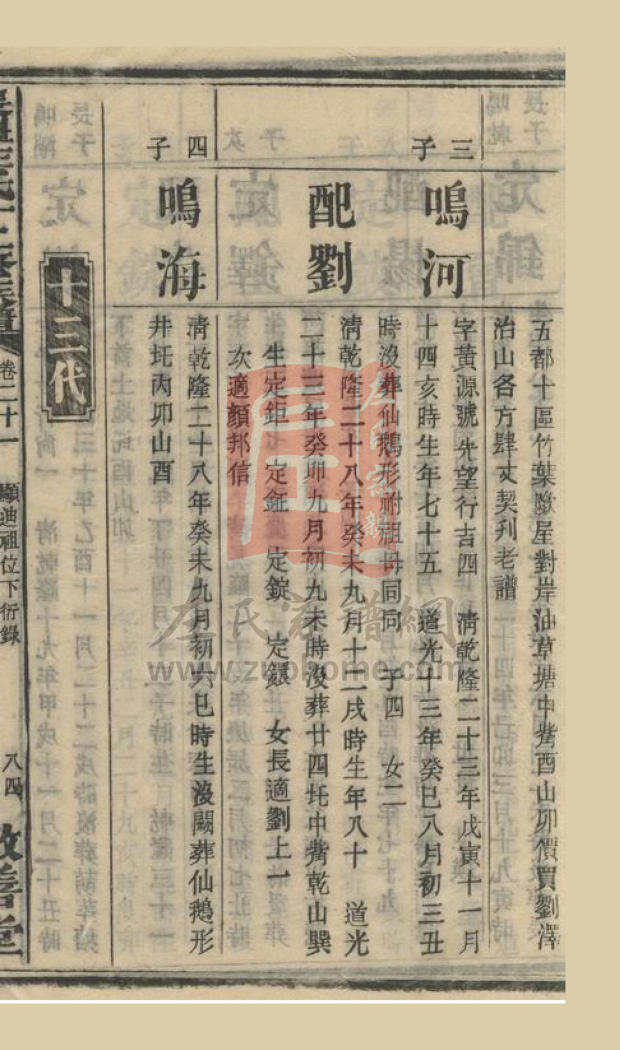 五都十區竹葉墩屋對岸油草塘中嘴酉山卯價買劉澤
治山各方肆丈契列老譜
三子
鳴河
字黃源號先望行吉四 清乾隆二十三年戊寅十一月
十四亥時生年七十五 道光十三年癸巳八月初三丑
時沒葬仙鵝形祔祖母同向 子四 女二
配劉
清乾隆二十八年癸未九月十二戌時生年八十 道光
二十三年癸卯九月初九未時沒葬廿四圫中嘴乾山巽
生定鉅 定鉦 定錠 定鐶 女長適劉上一
次適顏邦信
四子
鳴海
清乾隆二十八年癸未九月初六巳時生沒闕葬仙鵝形
井圫丙卯山酉
十三代
卷二十一
顯迪祖位下衍錄
八四
敦善堂
左氏家譜網
www.zuohome.com